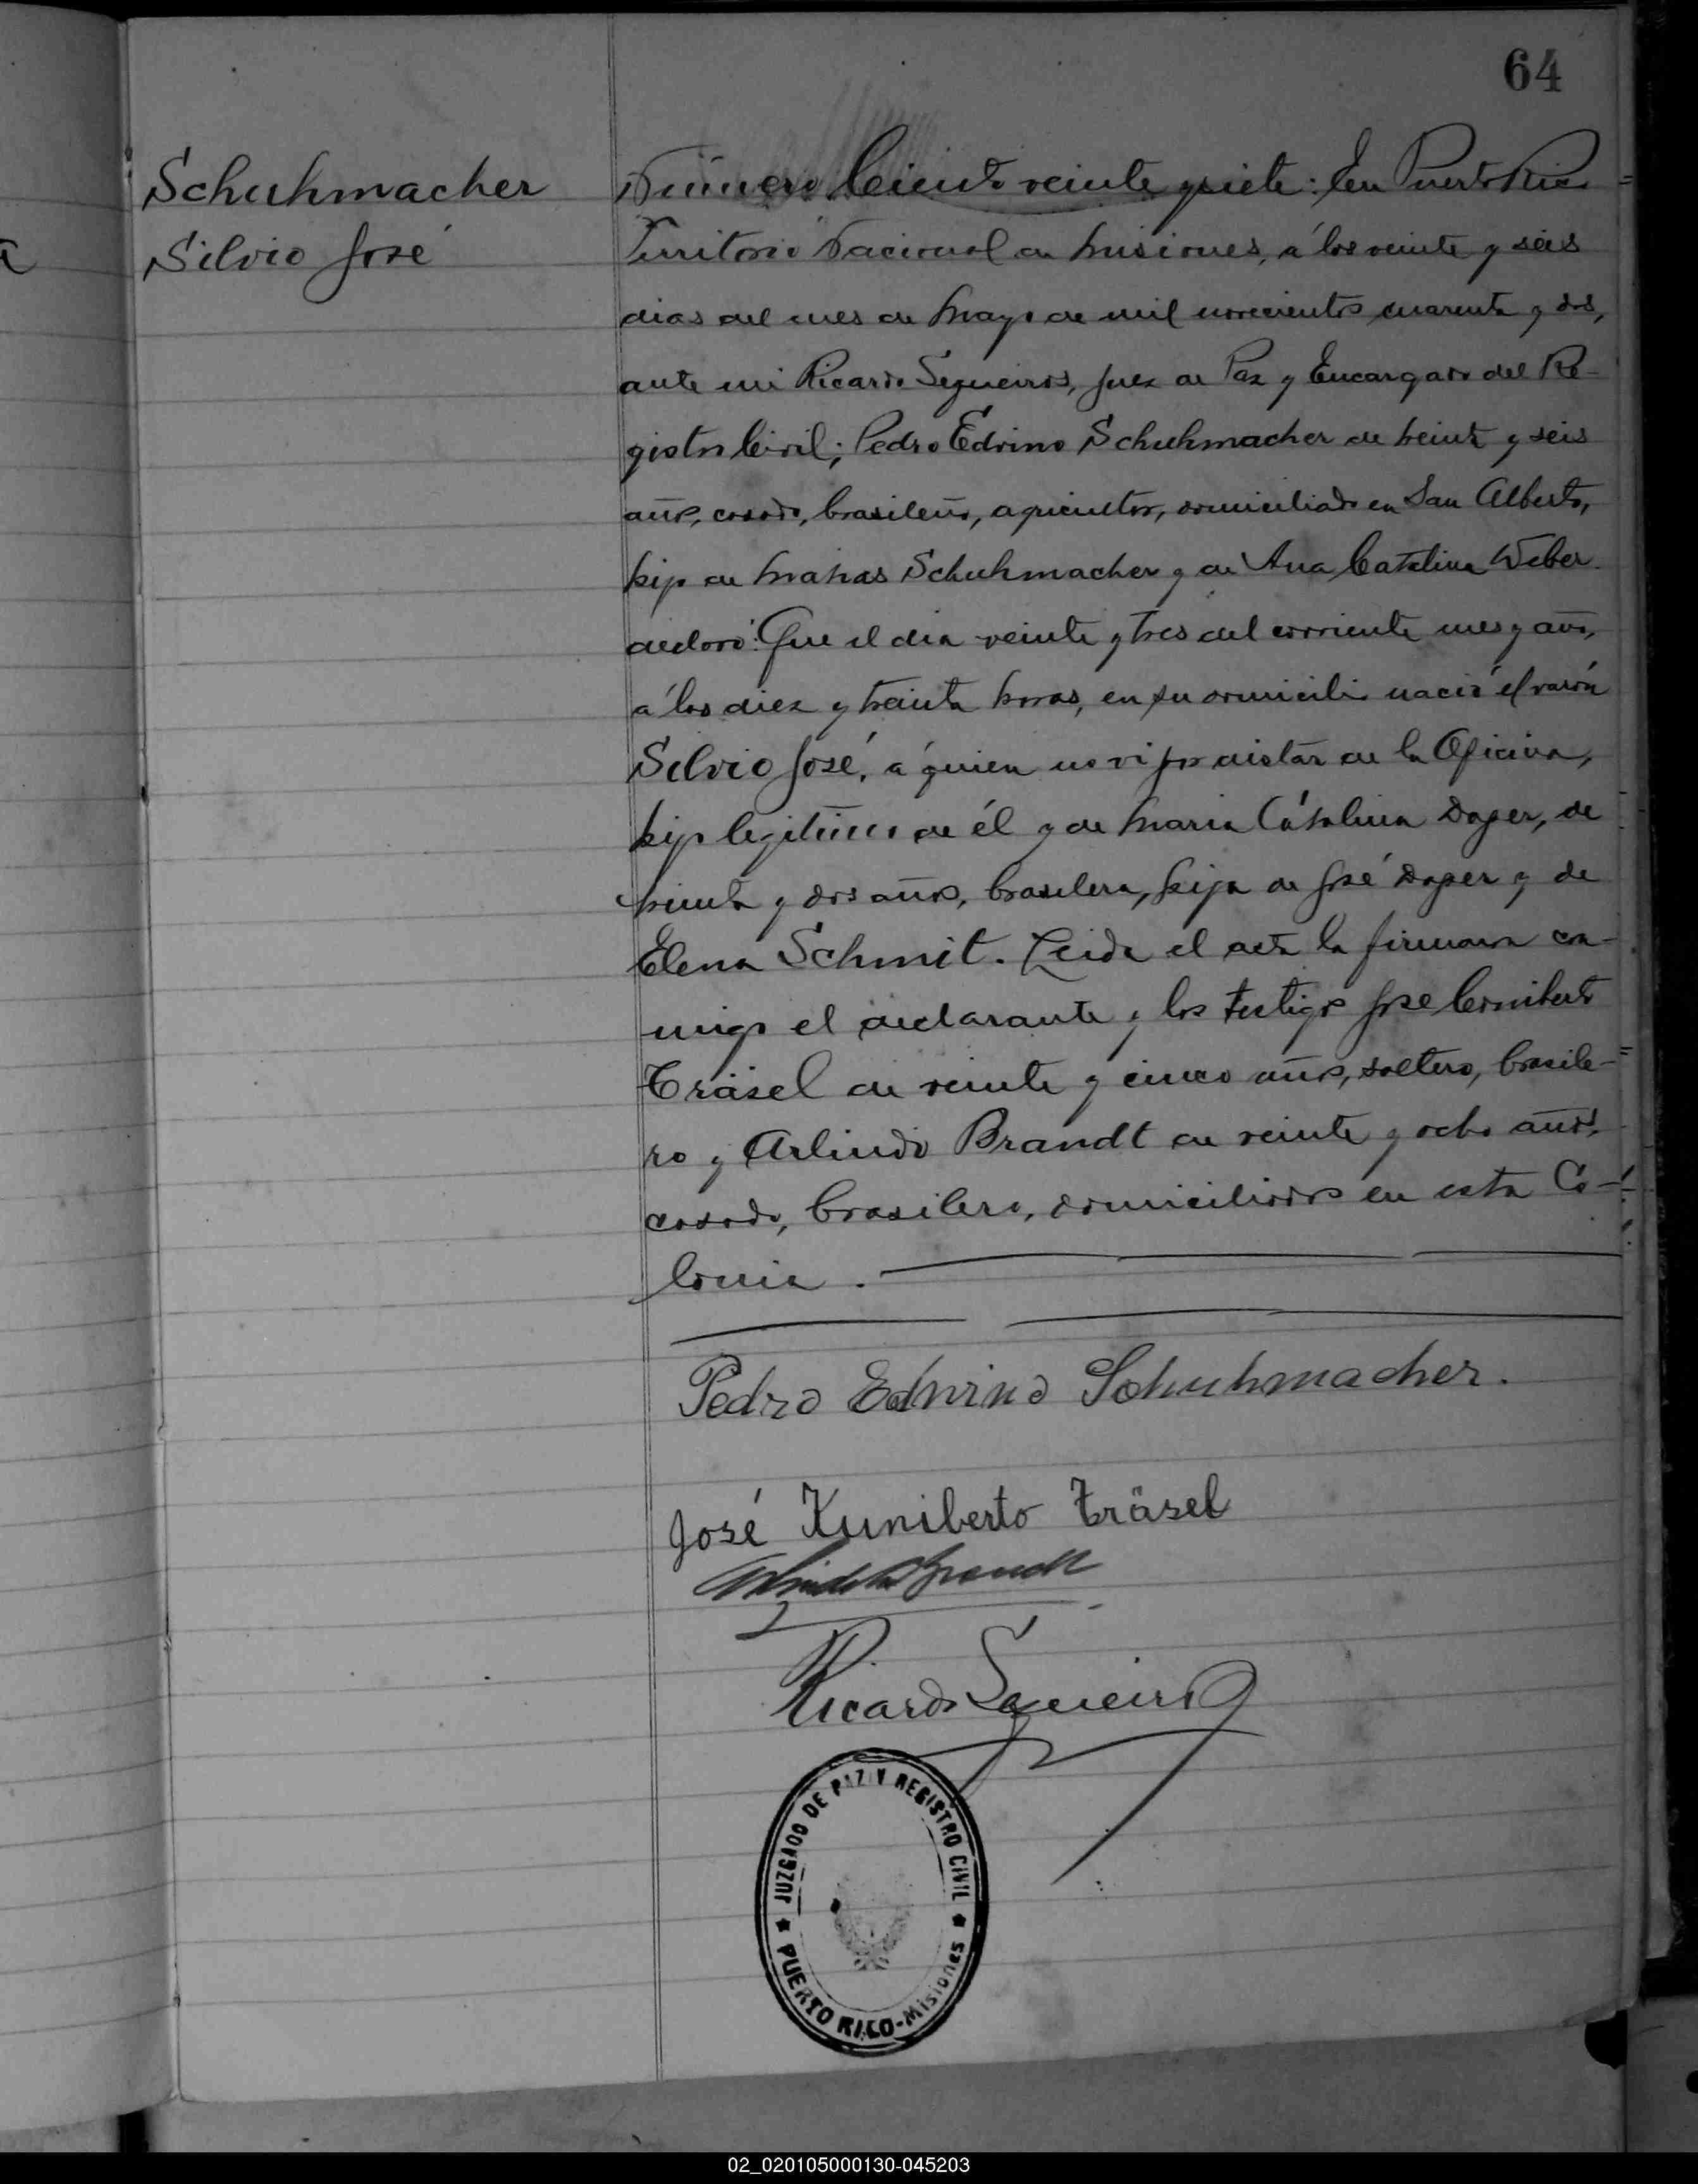 64
Schuhmacher
Silvio José
Número Ciento veinte y siete: En Puerto Rico
Territorio Nacional de Misiones, á los veinte y seis
dias del mes de Mayo de mil novecientos cuarenta y dos,
ante mi Ricardo Segueiros, Juez de Paz y Encargado del Re-
gistro Civil; Pedro Edvino Schuhmacher de treinta y seis
años, casado, brasileño, agricultor, domiciliado en San Alberto,
hijo de Matias Schuhmacher y de Ana Catalina Weber
declaró: Que el dia veinte y tres del corriente mes y año,
á las diez y treinta horas, en su domicilio nació el varón
Silvio José, á quien no vi por distar de la Oficina,
hijo legítimo de él y de Maria Catalina Daper, de
treinta y dos años, brasilera, hija de José Daper y de
Elena Schmit. Leida el acta la firmaron con-
migo el declarante y los testigos José Coniberto
Träsel de veinte y cinco años, soltero, brasile-
ro y Arlindo Brandt de veinte y ocho años,
casado, brasilero, domiciliados en esta Co-
lonia.
Pedro Edwino Schuhmacher.
José Kuniberto Träsel
Arlindo Brandt
Ricardo Segueiros
JUZGADO DE PAZ Y REGISTRO CIVIL
PUERTO RICO-Misiones
02_020105000130-045203